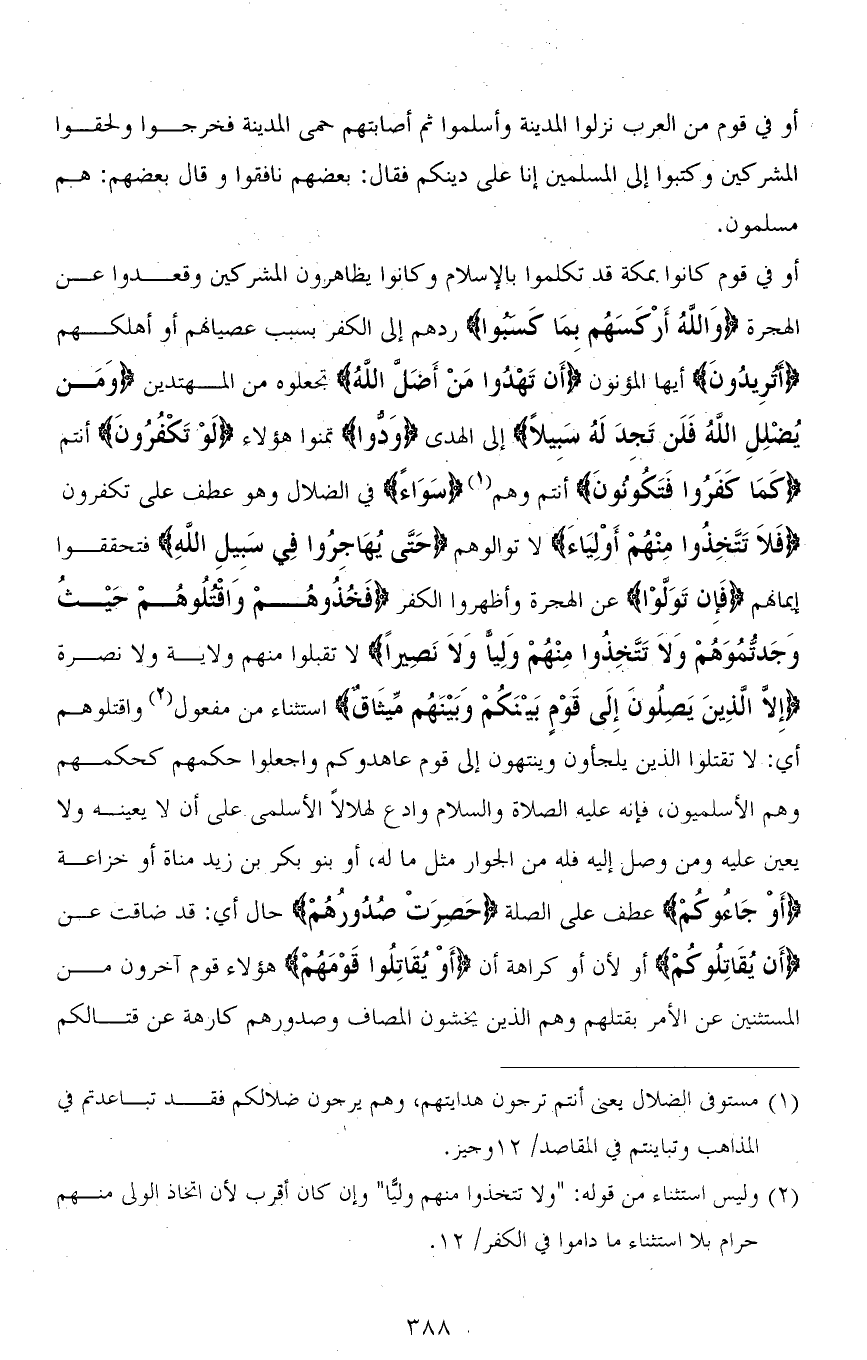 أو في قوم من العرب نزلوا المدينة وأسلموا ثم أصابتهم حمى المدينة فخرجوا ولحقوا
المشركين وكتبوا إلى المسلمين إنا على دينكم فقال: بعضهم نافقوا و قال بعضهم: هم
مسلمون.
أو في قوم كانوا بمكة قد تكلموا بالإسلام وكانوا يظاهرون المشركين وقعدوا عن
الهجرة ﴿وَاللَّهُ أَرْكَسَهُم بِمَا كَسَبُوا﴾ ردهم إلى الكفر بسبب عصيانهم أو أهلكهم
﴿أَتُرِيدُونَ﴾ أيها المؤنون ﴿أَن تَهْدُوا مَنْ أَضَلَّ اللَّهُ﴾ تجعلوه من المهتدين ﴿وَمَن
يُضْلِلِ اللَّهُ فَلَن تَجِدَ لَهُ سَبِيلاً﴾ إلى الهدى ﴿وَدُّوا﴾ تمنوا هؤلاء ﴿لَوْ تَكْفُرُونَ﴾ أنتم
﴿كَمَا كَفَرُوا فَتَكُونُونَ﴾ أنتم وهم(١) ﴿سَوَاءً﴾ في الضلال وهو عطف على تكفرون
﴿فَلاَ تَتَّخِذُوا مِنْهُمْ أَوْلِيَاءَ﴾ لا توالوهم ﴿حَتَّى يُهَاجِرُوا فِي سَبِيلِ اللَّهِ﴾ فتحققوا
إيمانهم ﴿فَإِن تَوَلَّوْا﴾ عن الهجرة وأظهروا الكفر ﴿فَخُذُوهُمْ وَاقْتُلُوهُمْ حَيْثُ
وَجَدتُّمُوَهُمْ وَلاَ تَتَّخِذُوا مِنْهُمْ وَلِياًّ وَلاَ نَصِيراً﴾ لا تقبلوا منهم ولاية ولا نصرة
﴿إِلاَّ الَّذِينَ يَصِلُونَ إِلَى قَوْمٍ بَيْنَكُمْ وَبَيْنَهُم مِّيثَاقٌ﴾ استثناء من مفعول(٢) واقتلوهم
أي: لا تقتلوا الذين يلجأون وينتهون إلى قوم عاهدوكم واجعلوا حكمهم كحكمهم
وهم الأسلميون، فإنه عليه الصلاة والسلام وادع لهلالاً الأسلمى على أن لا يعينه ولا
يعين عليه ومن وصل إليه فله من الجوار مثل ما له، أو بنو بكر بن زيد مناة أو خزاعة
﴿أَوْ جَاءُوكُمْ﴾ عطف على الصلة ﴿حَصِرَتْ صُدُورُهُمْ﴾ حال أي: قد ضاقت عن
﴿أَن يُقَاتِلُوكُمْ﴾ أو لأن أو كراهة أن ﴿أَوْ يُقَاتِلُوا قَوْمَهُمْ﴾ هؤلاء قوم آخرون من
المستثنين عن الأمر بقتلهم وهم الذين يخشون المصاف وصدورهم كارهة عن قتالكم
(١) مستوفى الضلال يعنى أنتم ترجون هدايتهم، وهم يرجون ضلالكم فقد تباعدتم في
المذاهب وتباينتم في المقاصد/ ١٢وجيز.
(٢) وليس استثناء من قوله: "ولا تتخذوا منهم وليًّا" وإن كان أقرب لأن اتخاذ الولى منهم
حرام بلا استثناء ما داموا في الكفر/ ١٢.
٣٨٨